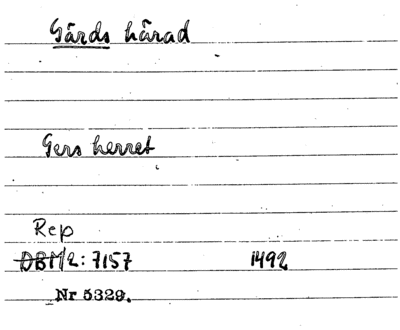 Gärds härad
Gers herret
Rep
DBM/2: 7157 1492
Nr 5329.